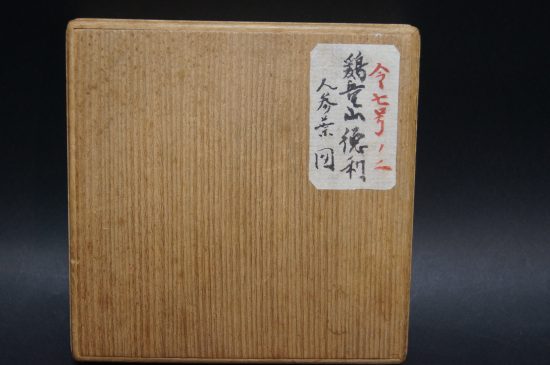 令七号ノ二
鶏龍山徳利
人参葉図